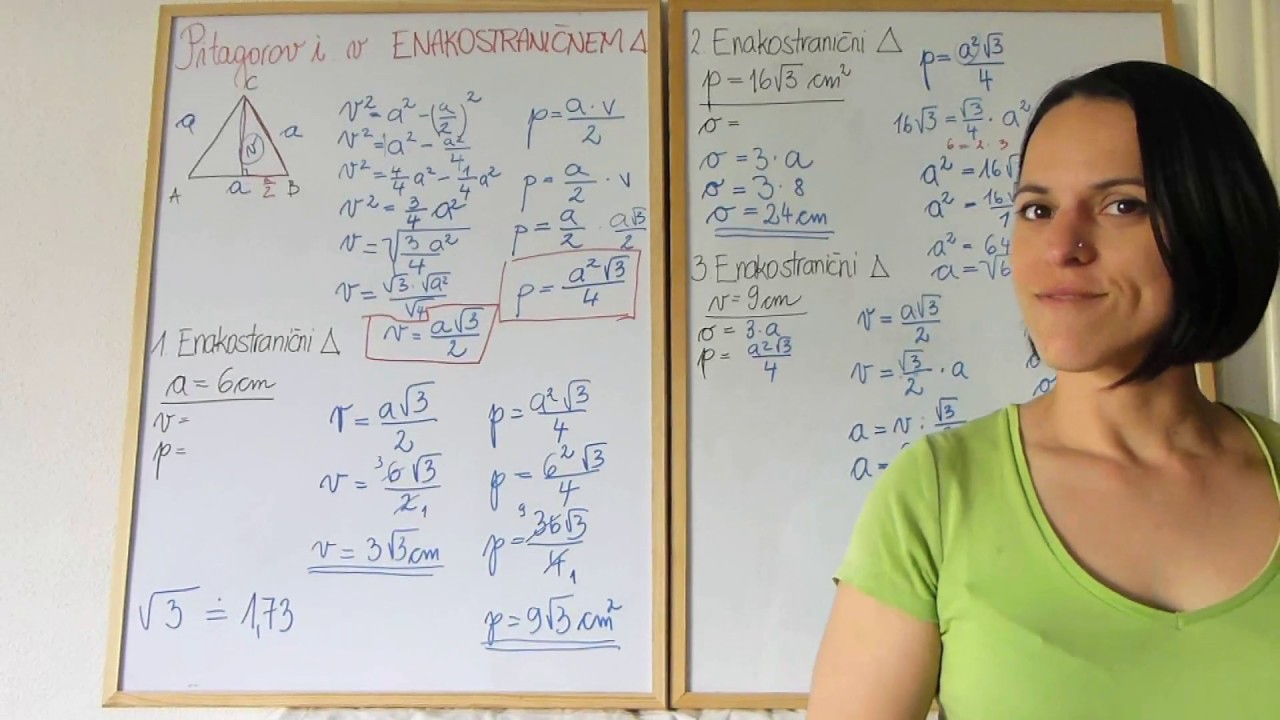 Pitagorov i v ENAKOSTRANIČNEM Δ
C
a
a
v
A
a
a/2
B
v² = a² - (a/2)²
v² = a² - a²/4
v² = 4/4 a² - 1/4 a²
v² = 3/4 a²
v = √(3 a²/4)
v = √3 · √a² / √4
v = a√3/2
p = a · v / 2
p = a/2 · v
p = a/2 · a√3/2
p = a²√3/4
1. Enakostranični Δ
a = 6cm
v =
p =
v = a√3/2
v = ³6√3/2₁
v = 3√3 cm
p = a²√3/4
p = 6²√3/4
p = ⁹36√3/4₁
p = 9√3 cm²
√3 ≐ 1,73
2. Enakostranični Δ
p = 16√3 cm²
o =
o = 3 · a
o = 3 · 8
o = 24 cm
p = a²√3/4
16√3 = √3/4 · a²
6 = 2 · 3
a² = 16√
a² = 16√
a² = 64
a = √6
3. Enakostranični Δ
v = 9 cm
o = 3 · a
p = a²√3/4
v = a√3/2
v = √3/2 · a
a = v : √3
a =